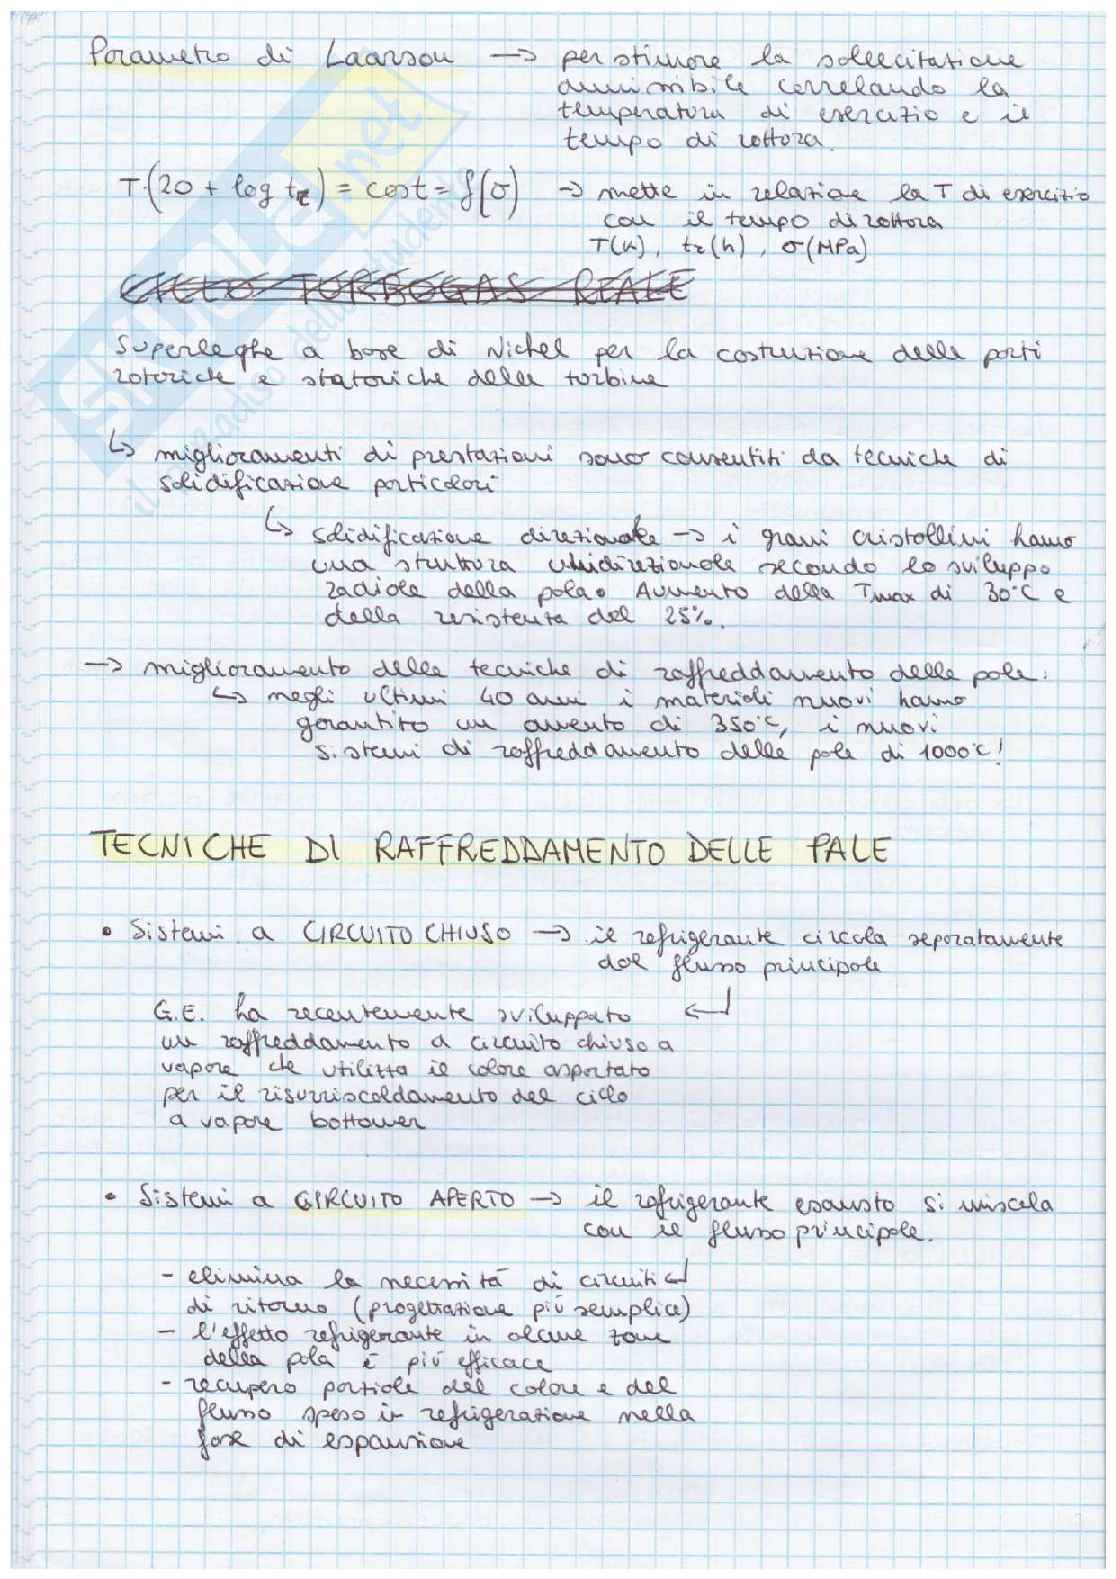 Parametro di Laarson → per stimare la sollecitazione
ammissibile correlando la
temperatura di esercizio e il
tempo di rottura.
T·(20 + log tr) = cost = f(σ) → mette in relazione la T di esercizio
con il tempo di rottura
T(K), tr(h), σ(MPa)
CICLO TURBOGAS REALE
Superleghe a base di Nichel per la costruzione delle parti
rotoriche e statoriche delle turbine
↳ miglioramenti di prestazioni sono consentiti da tecniche di
solidificazione particolari
↳ solidificazione direzionale → i grani cristallini hanno
una struttura unidirezionale secondo lo sviluppo
radiale della pala. Aumento della Tmax di 30°C e
della resistenza del 25%.
→ miglioramento delle tecniche di raffreddamento delle pale.
↳ negli ultimi 40 anni i materiali nuovi hanno
garantito un aumento di 350°C, i nuovi
sistemi di raffreddamento delle pale di 1000°C!
TECNICHE DI RAFFREDDAMENTO DELLE PALE
• Sistemi a CIRCUITO CHIUSO → il refrigerante circola separatamente
dal flusso principale
G.E. ha recentemente sviluppato ↵
un raffreddamento a circuito chiuso a
vapore che utilizza il calore asportato
per il risurriscaldamento del ciclo
a vapore bottomer
• Sistemi a CIRCUITO APERTO → il refrigerante esausto si miscela
con il flusso principale.
- elimina la necessità di circuiti ↵
di ritorno (progettazione più semplice)
- l'effetto refrigerante in alcune zone
della pala è più efficace
- recupero parziale del calore e del
flusso speso in refrigerazione nella
fase di espansione